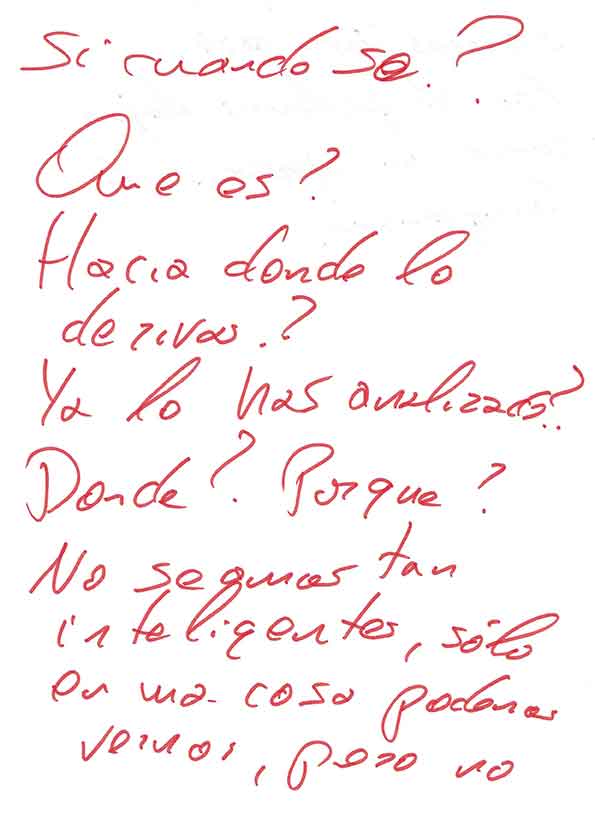 Si cuando se.?
Que es?
Hacia donde lo
derivas.?
Ya lo has analizado?
Donde? Porque?
No seamos tan
inteligentes, sólo
en una cosa podemos
vernos, pero no